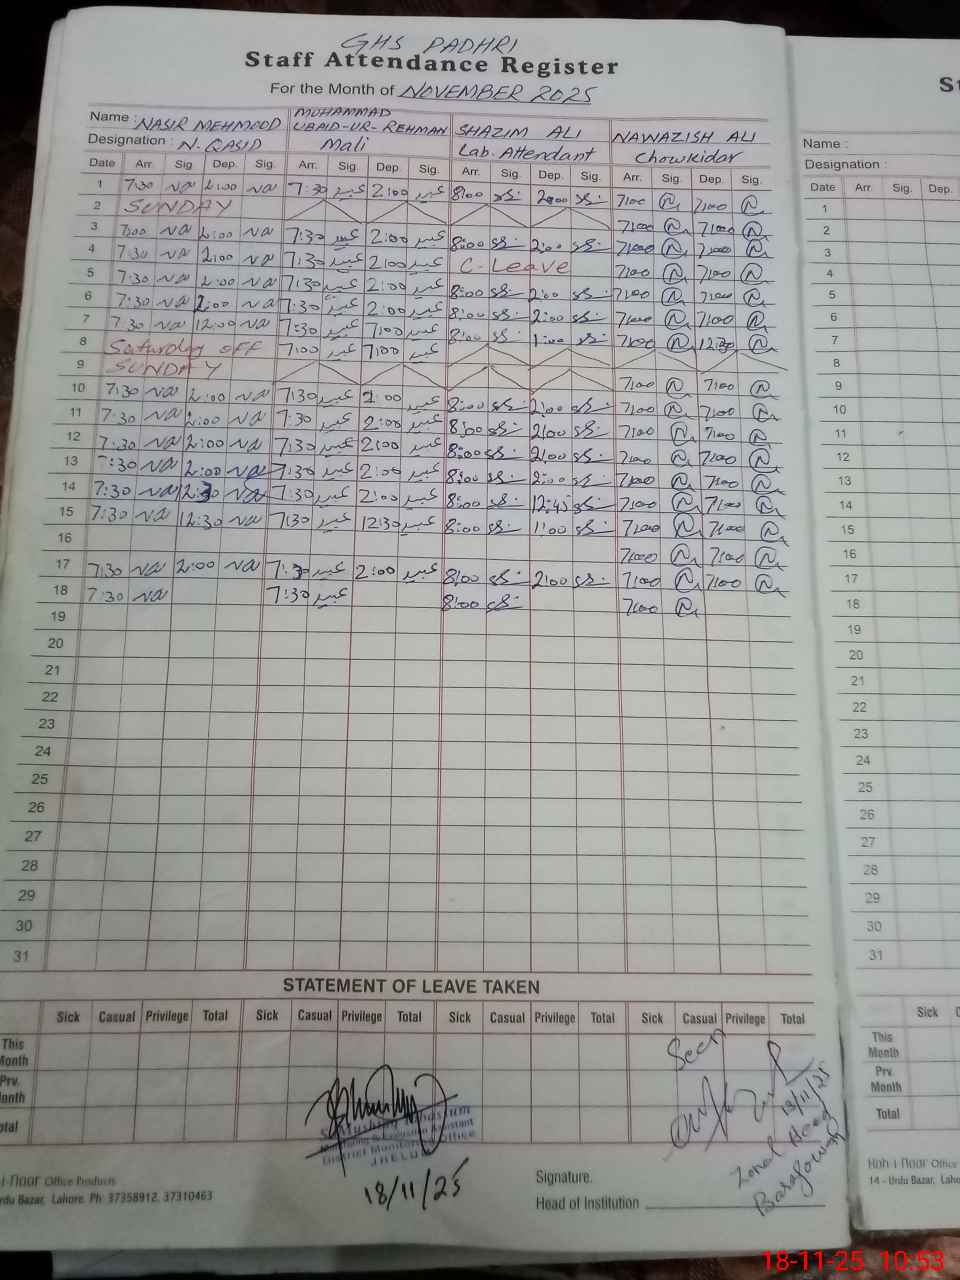 GHS PADHRI
Staff Attendance Register
For the Month of NOVEMBER 2025
Name : NASIR MEHMOOD MUHAMMAD UBAID-UR-REHMAN SHAZIM ALI NAWAZISH ALI
Designation : N. QASID Mali Lab. Attendant Chowkidar
Date Arr. Sig. Dep. Sig. Arr. Sig. Dep. Sig. Arr. Sig. Dep. Sig. Arr. Sig. Dep. Sig.
1 7:30 NA 2:00 NA 7:30 عبید 2:00 عبید 8:00 2:00 7:00 7:00
2 SUNDAY 7:00 7:00
3 7:00 NA 2:00 NA 7:30 عبید 2:00 عبید 8:00 2:00 7:00 7:00
4 7:30 NA 2:00 NA 7:30 عبید 2:00 عبید C-Leave 7:00 7:00
5 7:30 NA 2:00 NA 7:30 عبید 2:00 عبید 8:00 2:00 7:00 7:00
6 7:30 NA 2:00 NA 7:30 عبید 2:00 عبید 8:00 2:00 7:00 7:00
7 7:30 NA 12:00 NA 7:30 عبید 7:00 عبید 8:00 1:00 7:00 12:30
8 Saturday off 7:00 عبید 7:00 عبید
9 SUNDAY 7:00 7:00
10 7:30 NA 2:00 NA 7:30 عبید 2:00 عبید 8:00 2:00 7:00 7:00
11 7:30 NA 2:00 NA 7:30 عبید 2:00 عبید 8:00 2:00 7:00 7:00
12 7:30 NA 2:00 NA 7:30 عبید 2:00 عبید 8:00 2:00 7:00 7:00
13 7:30 NA 2:00 NA 7:30 عبید 2:00 عبید 8:00 2:00 7:00 7:00
14 7:30 NA NA 7:30 عبید 2:00 عبید 8:00 12:45 7:00 7:00
15 7:30 NA 12:30 NA 7:30 عبید 12:30 عبید 8:00 1:00 7:00 7:00
16 7:00 7:00
17 7:30 NA 2:00 NA 7:30 عبید 2:00 عبید 8:00 2:00 7:00 7:00
18 7:30 NA 7:30 عبید 8:00 7:00
19
20
21
22
23
24
25
26
27
28
29
30
31
STATEMENT OF LEAVE TAKEN
Sick Casual Privilege Total Sick Casual Privilege Total Sick Casual Privilege Total Sick Casual Privilege Total
This Month
Prv. Month
Total
Seen
13/11/25
Zonal Head
Monitoring & Evaluation Assistant
District Monitoring Office
JHELUM
18/11/25
Signature.
Head of Institution
Office Products
Urdu Bazar, Lahore. Ph: 37358912, 37310463
St
Name :
Designation :
Date Arr. Sig. Dep.
1
2
3
4
5
6
7
8
9
10
11
12
13
14
15
16
17
18
19
20
21
22
23
24
25
26
27
28
29
30
31
Sick
This Month
Prv. Month
Total
Koh-i-Noor Office
14 - Urdu Bazar, Lahore
18-11-25 10:53